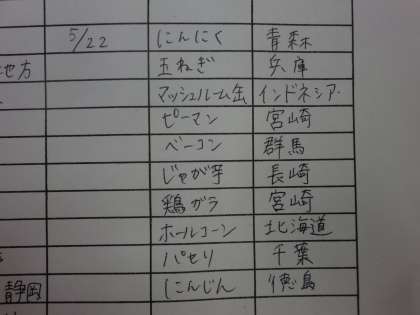 5/22 にんにく 青森
地方 玉ねぎ 兵庫
マッシュルーム缶 インドネシア
ピーマン 宮崎
ベーコン 群馬
じゃが芋 長崎
鶏ガラ 宮崎
ホールコーン 北海道
パセリ 千葉
静岡 にんじん 徳島